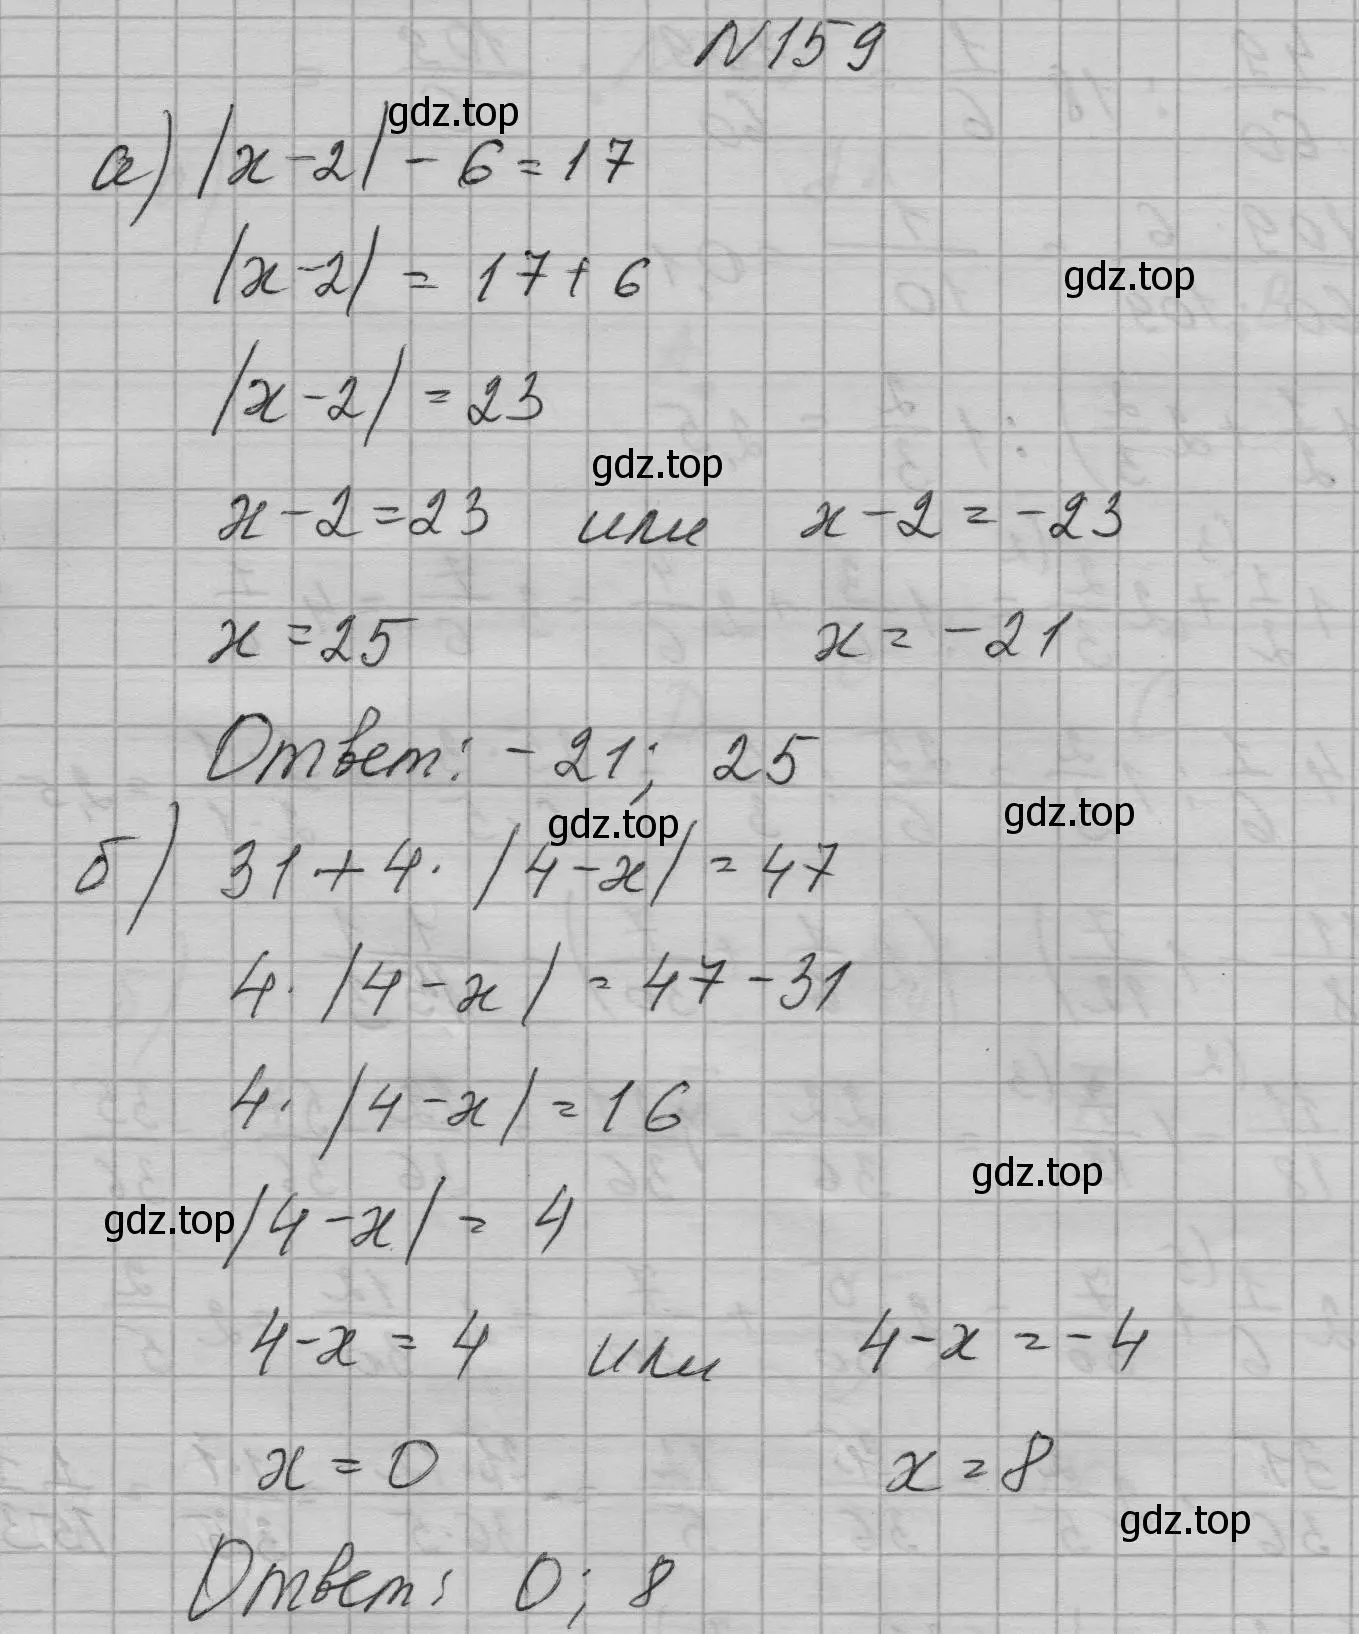 N159
gdz.top
а) |x-2| - 6 = 17
|x-2| = 17+6
gdz.top
|x-2| = 23
gdz.top
x-2=23 или x-2=-23
x=25 x=-21
Ответ: -21; 25
gdz.top
gdz.top
б) 31+4·|4-x|=47
4·|4-x|=47-31
4·|4-x|=16
gdz.top
gdz.top |4-x|=4
4-x=4 или 4-x=-4
x=0 x=8
gdz.top
Ответ: 0; 8